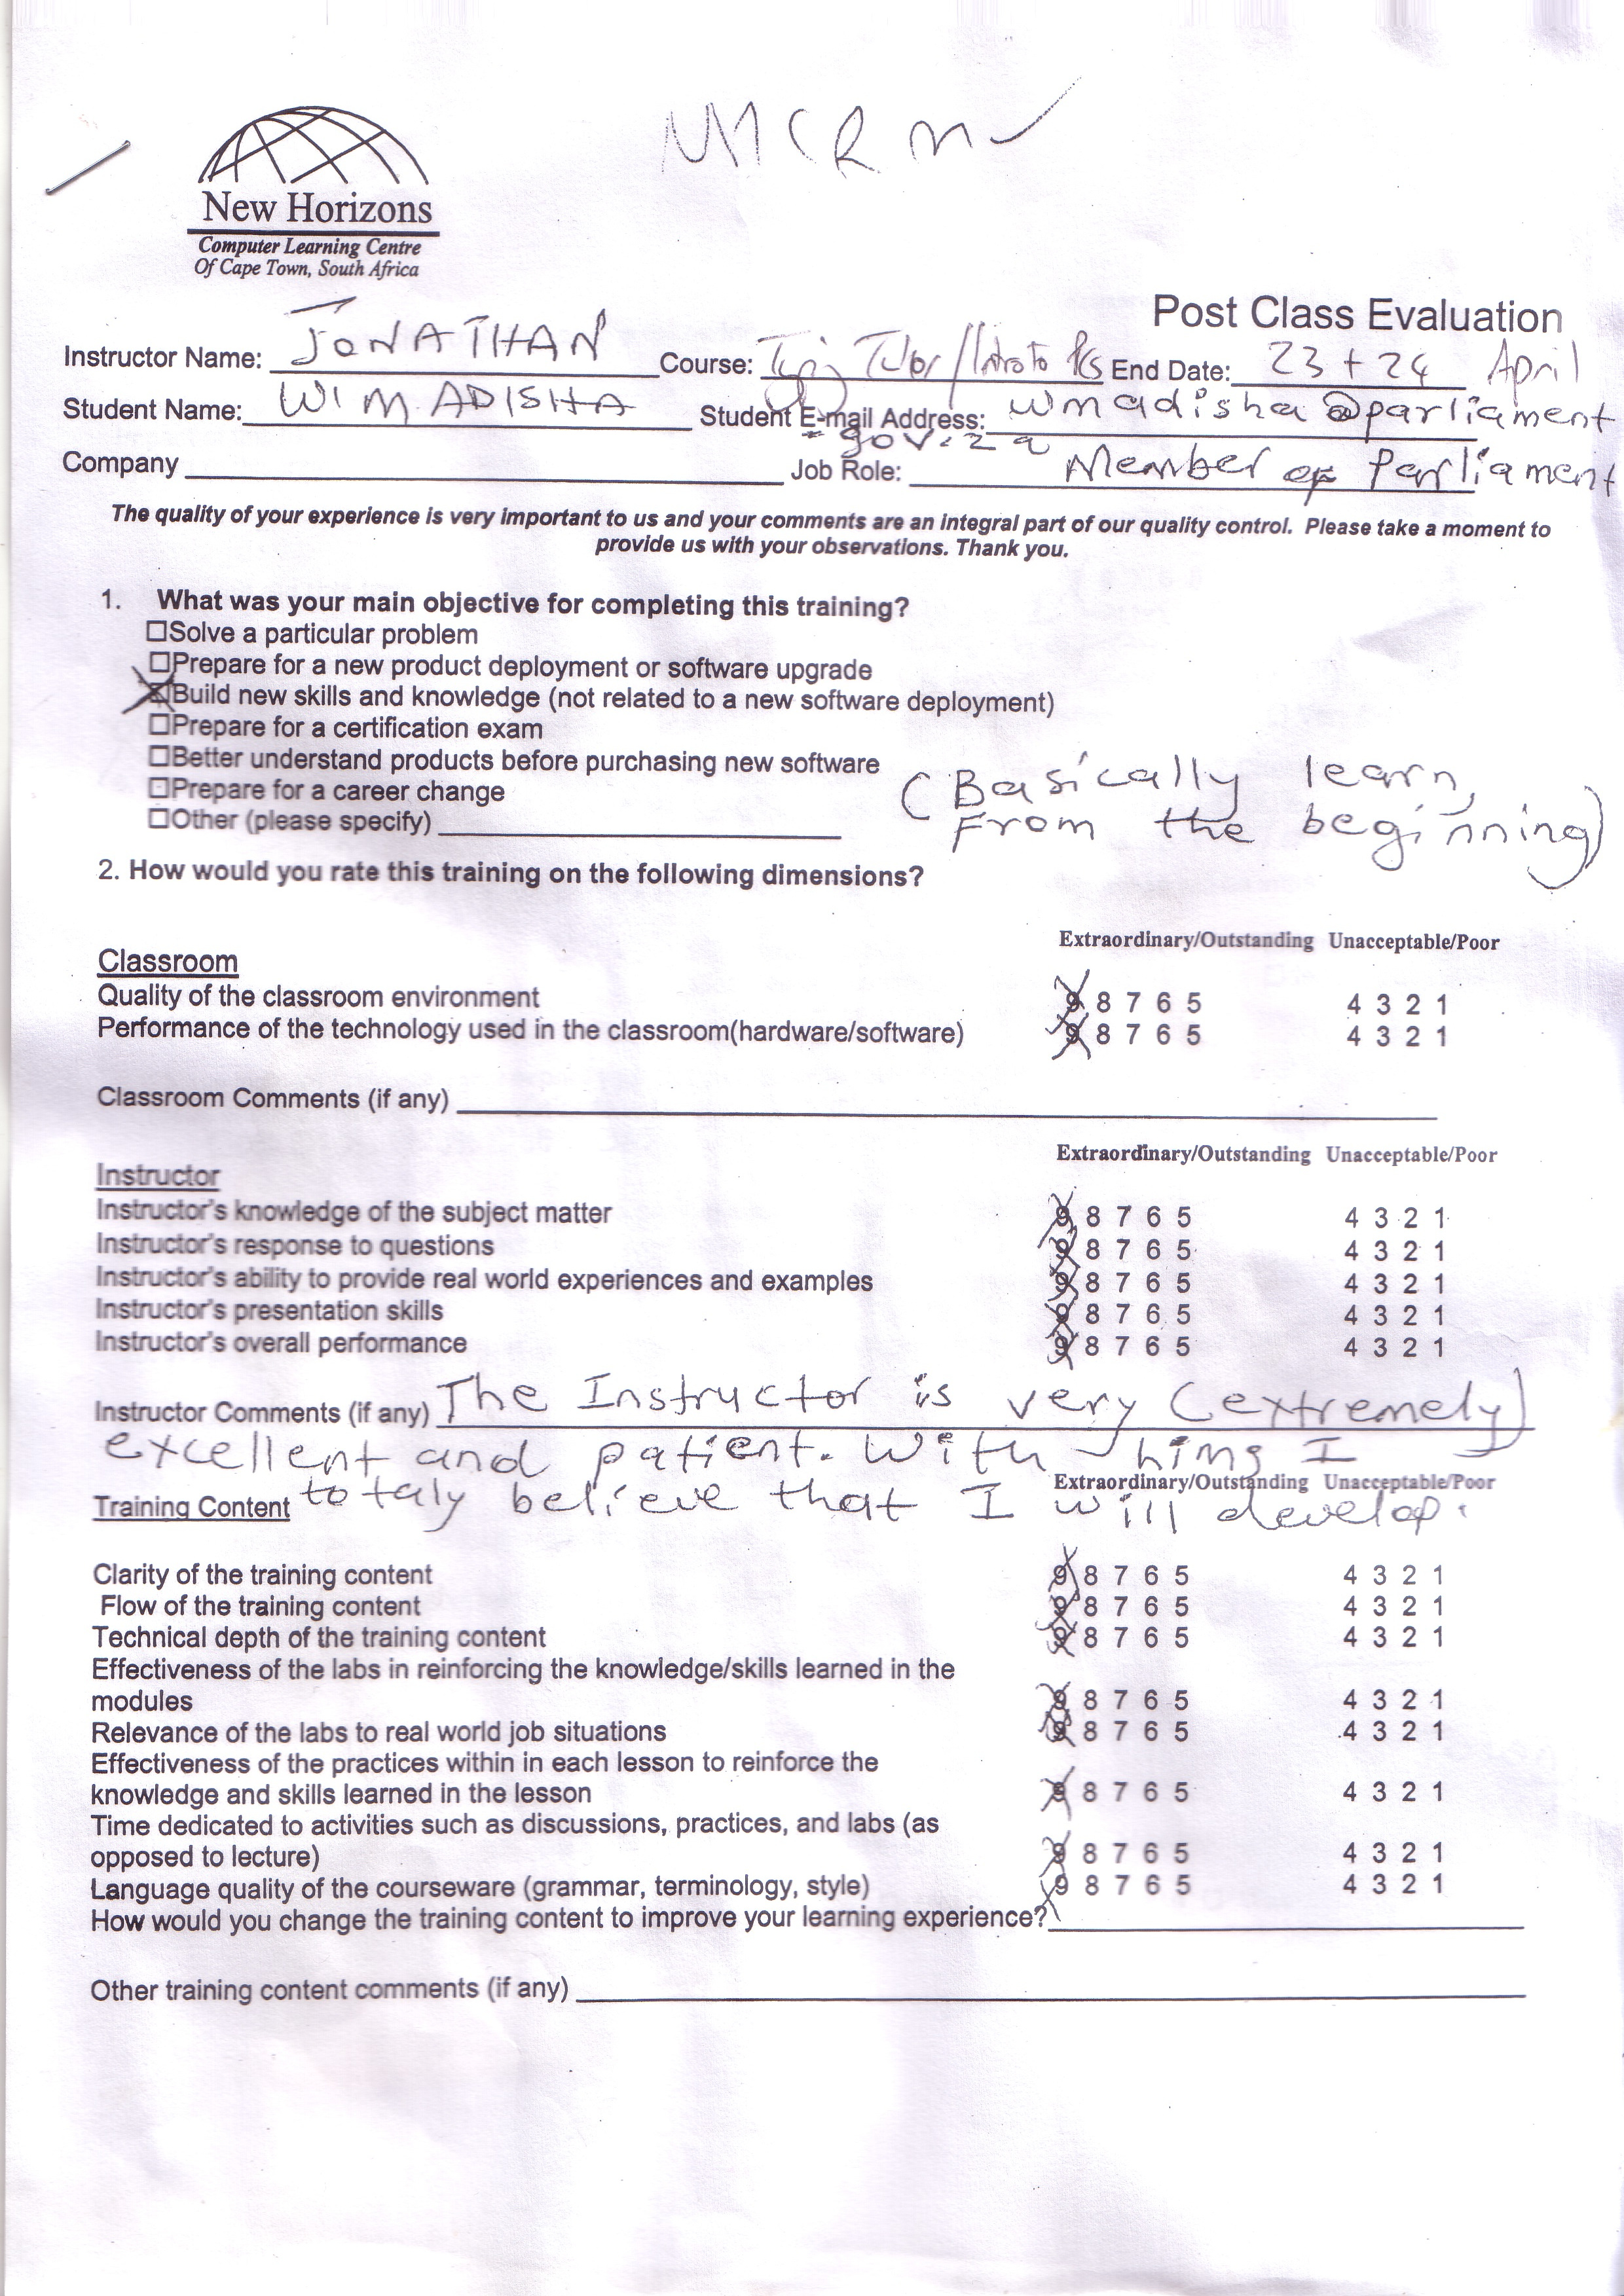 New Horizons
Computer Learning Centre
Of Cape Town, South Africa
Post Class Evaluation
Instructor Name: JONATHAN Course: Tutor/Intro to PCs End Date: 23 + 24 April
Student Name: WI MADISHA Student E-mail Address: wmadisha@parliament
.gov.za
Company Job Role: Member of Parliament
The quality of your experience is very important to us and your comments are an integral part of our quality control. Please take a moment to
provide us with your observations. Thank you.
1. What was your main objective for completing this training?
☐Solve a particular problem
☐Prepare for a new product deployment or software upgrade
☒Build new skills and knowledge (not related to a new software deployment)
☐Prepare for a certification exam
☐Better understand products before purchasing new software
☐Prepare for a career change
☐Other (please specify)
(Basically learn
From the beginning)
2. How would you rate this training on the following dimensions?
Extraordinary/Outstanding Unacceptable/Poor
Classroom
Quality of the classroom environment 9 8 7 6 5 4 3 2 1
Performance of the technology used in the classroom(hardware/software) 9 8 7 6 5 4 3 2 1
Classroom Comments (if any)
Extraordinary/Outstanding Unacceptable/Poor
Instructor
Instructor's knowledge of the subject matter 9 8 7 6 5 4 3 2 1
Instructor's response to questions 9 8 7 6 5 4 3 2 1
Instructor's ability to provide real world experiences and examples 9 8 7 6 5 4 3 2 1
Instructor's presentation skills 9 8 7 6 5 4 3 2 1
Instructor's overall performance 9 8 7 6 5 4 3 2 1
Instructor Comments (if any) The Instructor is very (extremely)
excellent and patient. With him I
Extraordinary/Outstanding Unacceptable/Poor
Training Content totaly believe that I will develop.
Clarity of the training content 9 8 7 6 5 4 3 2 1
Flow of the training content 9 8 7 6 5 4 3 2 1
Technical depth of the training content 9 8 7 6 5 4 3 2 1
Effectiveness of the labs in reinforcing the knowledge/skills learned in the
modules 9 8 7 6 5 4 3 2 1
Relevance of the labs to real world job situations 9 8 7 6 5 4 3 2 1
Effectiveness of the practices within in each lesson to reinforce the
knowledge and skills learned in the lesson 9 8 7 6 5 4 3 2 1
Time dedicated to activities such as discussions, practices, and labs (as
opposed to lecture) 9 8 7 6 5 4 3 2 1
Language quality of the courseware (grammar, terminology, style) 9 8 7 6 5 4 3 2 1
How would you change the training content to improve your learning experience?
Other training content comments (if any)